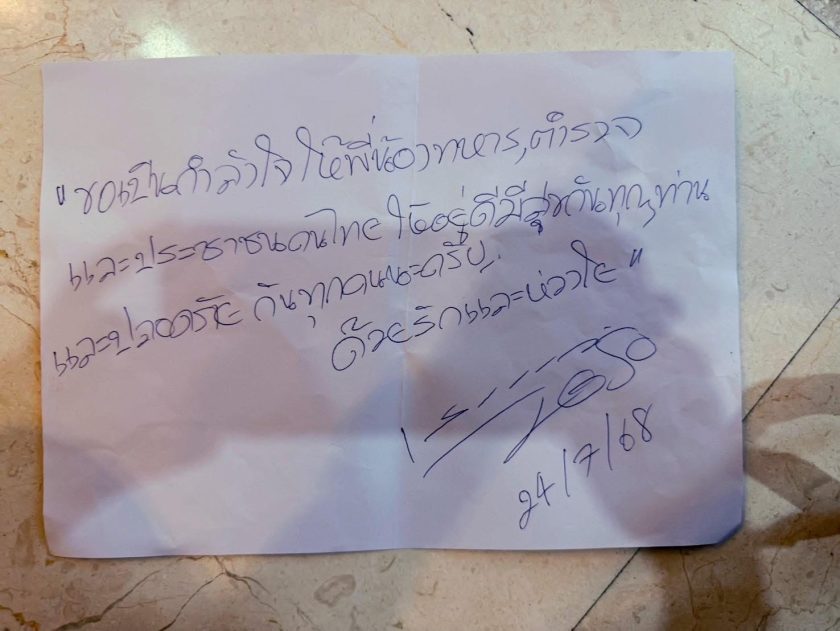 "ขอเป็นกำลังใจ ให้พี่น้องทหาร,ตำรวจ
และประชาชนคนไทย ให้อยู่ดีมีสุขกันทุกๆท่าน
และปลอดภัย กันทุกคนนะครับ.
ด้วยรักและห่วงใย"
24/7/68